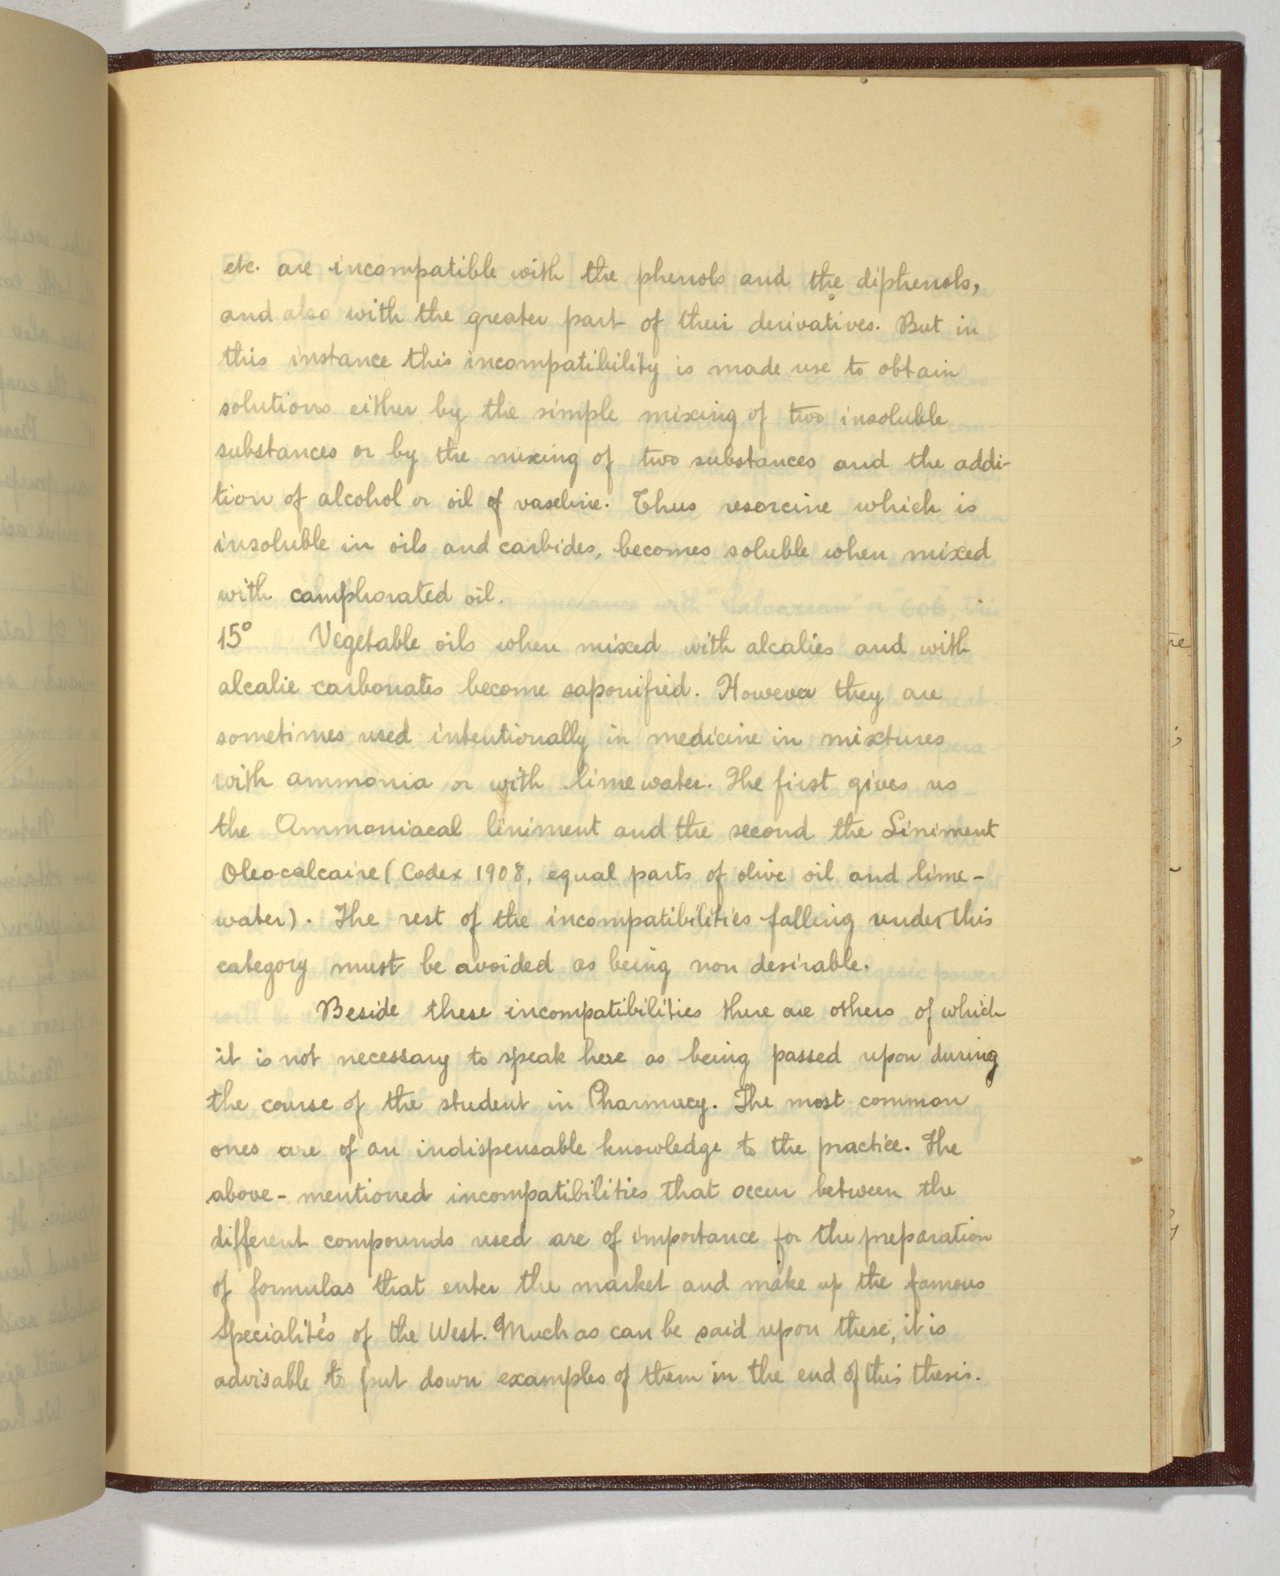 etc. are incompatible with the phenols and the diphenols,
and also with the greater part of their derivatives. But in
this instance this incompatibility is made use to obtain
solutions either by the simple mixing of two insoluble
substances or by the mixing of two substances and the addi-
tion of alcohol or oil of vaseline. Thus resorcine which is
insoluble in oils and carbides, becomes soluble when mixed
with camphorated oil.
15° Vegetable oils when mixed with alcalies and with
alcalie carbonates become saponified. However they are
sometimes used intentionally in medicine in mixtures
with ammonia or with lime water. The first gives us
the Ammoniacal liniment and the second the Liniment
Oleo-calcaire (Codex 1908, equal parts of olive oil and lime-
water). The rest of the incompatibilities falling under this
category must be avoided as being non desirable.
Beside these incompatibilities there are others of which
it is not necessary to speak here as being passed upon during
the course of the student in Pharmacy. The most common
ones are of an indispensable knowledge to the practice. The
above-mentioned incompatibilities that occur between the
different compounds used are of importance for the preparation
of formulas that enter the market and make up the famous
Specialités of the West. Much as can be said upon these, it is
advisable to put down examples of them in the end of this thesis.